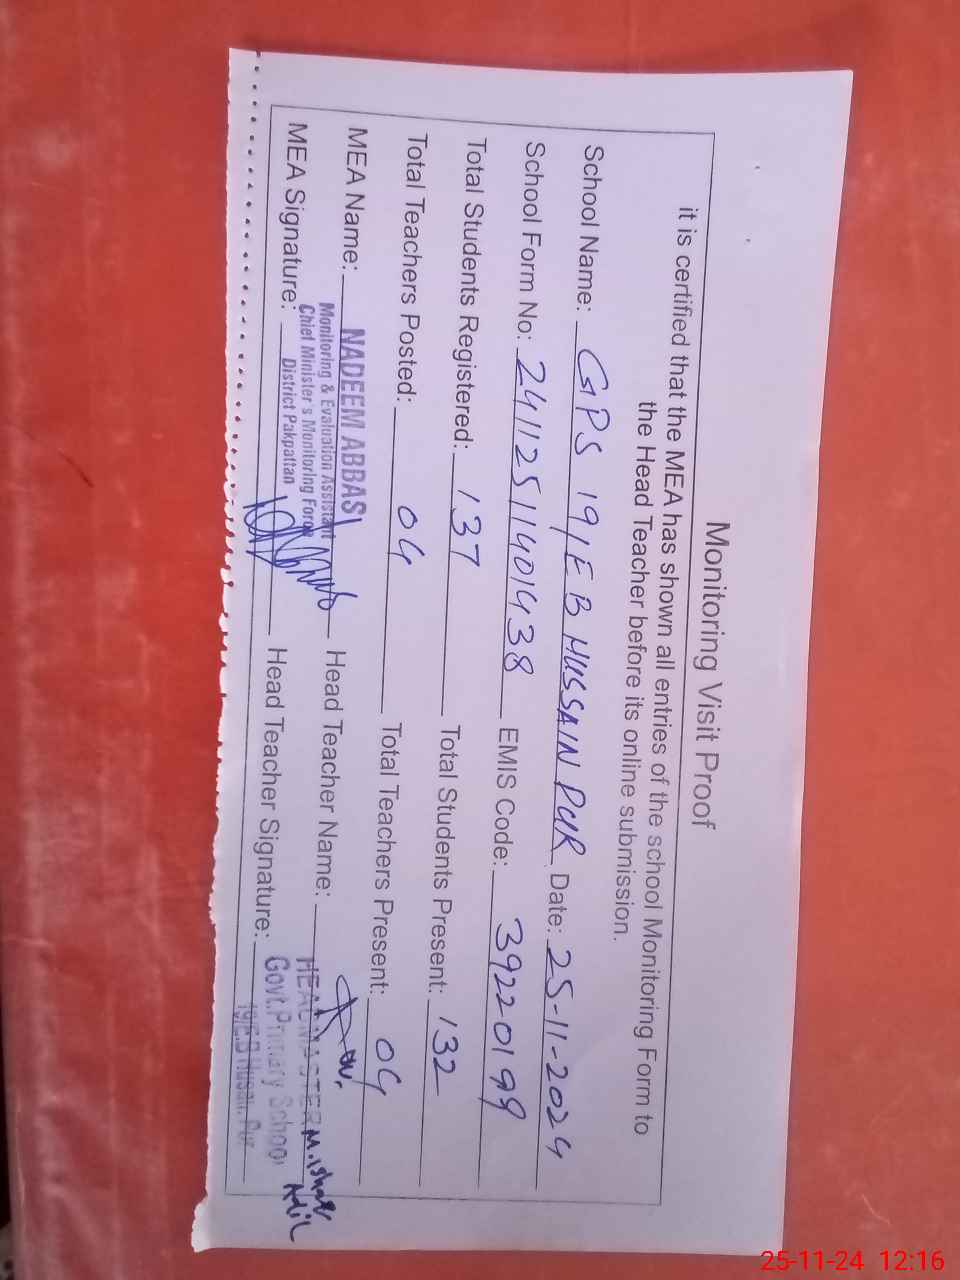 Monitoring Visit Proof
it is certified that the MEA has shown all entries of the school Monitoring Form to
the Head Teacher before its online submission.
School Name: GPS 19/EB HUSSAIN PUR Date: 25-11-2024
School Form No: 24112511401438 EMIS Code: 39220199
Total Students Registered: 137 Total Students Present: 132
Total Teachers Posted: 04 Total Teachers Present: 04
MEA Name: NADEEM ABBAS Head Teacher Name:
Monitoring & Evaluation Assistant
Chief Minister's Monitoring Force
District Pakpattan
MEA Signature: Head Teacher Signature:
HEADMASTER
Govt. Primary School
19/E.B Husain Pur
25-11-24 12:16